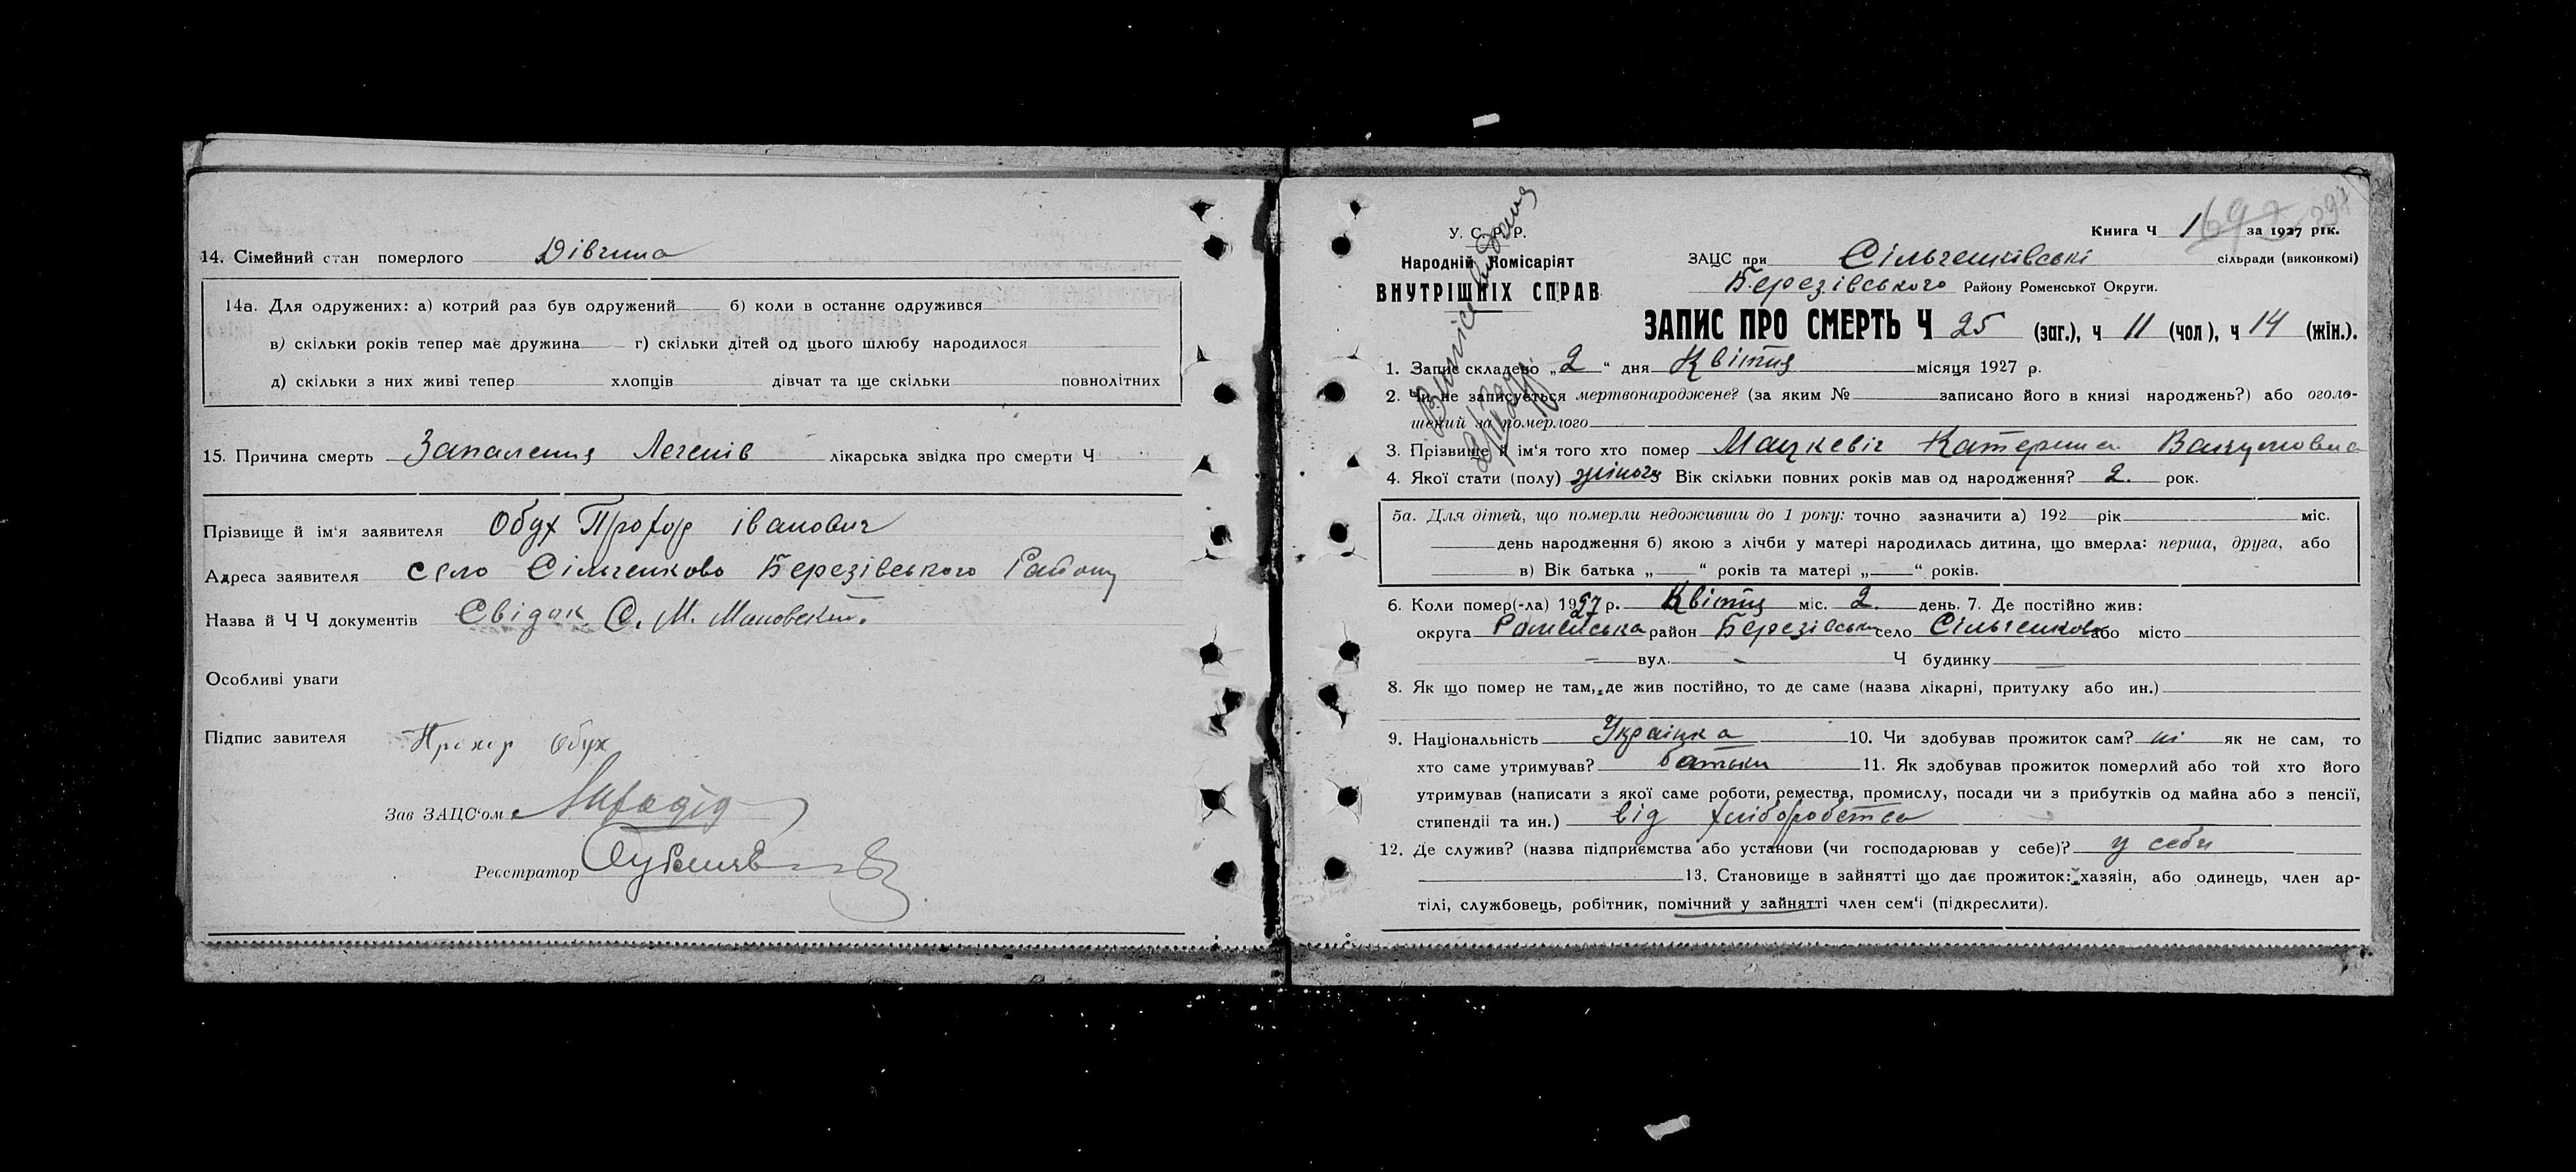 14. Сімейний стан померлого Дівчина
14а. Для одружених: а) котрий раз був одружений б) коли в останнє одружився
в) скільки років тепер має дружина г) скільки дітей од цього шлюбу народилося
д) скільки з них живі тепер хлопців дівчат та ще скільки повнолітних
15. Причина смерть Запалення Легенів лікарська звідка про смерти Ч
Прізвище й ім'я заявителя Обух Прохор іванович
Адреса заявителя село Сільченково Березівського Району
Назва й Ч Ч документів Свідок С. М. Мановский.
Особливі уваги
Підпис завителя Прохор Обух
Зав ЗАЦС'ом
Реєстратор
Книга Ч 1 за 1927 рік.
У. С. Р. Р.
Народній Комісаріят
ВНУТРІШНІХ СПРАВ
ЗАЦС при Сільченківські сільради (виконкомі)
Березівського Району Роменської Округи.
ЗАПИС ПРО СМЕРТЬ Ч 25 (заг.), ч 11 (чол), ч 14 (жін.).
1. Запис складено „2“ дня Квітня місяця 1927 р.
2. Чи не записується мертвонароджене? (за яким № записано його в книзі народжень?) або оголо-
шений за померлого
3. Прізвище й ім'я того хто помер Мацкевіч Катерина
4. Якої стати (полу) жіночя Вік скільки повних років мав од народження? 2. рок.
5а. Для дітей, що померли недоживши до 1 року: точно зазначити а) 192 рік міс.
день народження б) якою з лічби у матері народилась дитина, що вмерла: перша, друга, або
в) Вік батька „ “ років та матері „ “ років.
6. Коли помер(-ла) 1927 р. Квітня міс. 2. день. 7. Де постійно жив:
округа Роменська район Березівськи село Сільченково або місто
вул. Ч будинку
8. Як що помер не там, де жив постійно, то де саме (назва лікарні, притулку або ин.)
9. Національність Украінка 10. Чи здобував прожиток сам? ні як не сам, то
хто саме утримував? батьки 11. Як здобував прожиток померлий або той хто його
утримував (написати з якої саме роботи, ремества, промислу, посади чи з прибутків од майна або з пенсії,
стипендії та ин.) від хліборобства
12. Де служив? (назва підприємства або установи (чи господарював у себе)? у себи
13. Становище в зайнятті що дає прожиток: хазяін, або одинець, член ар-
тілі, службовець, робітник, помічний у зайнятті член сем'і (підкреслити).